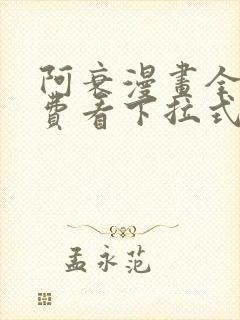 阿衰漫畫全
費看下拉式
孟永范